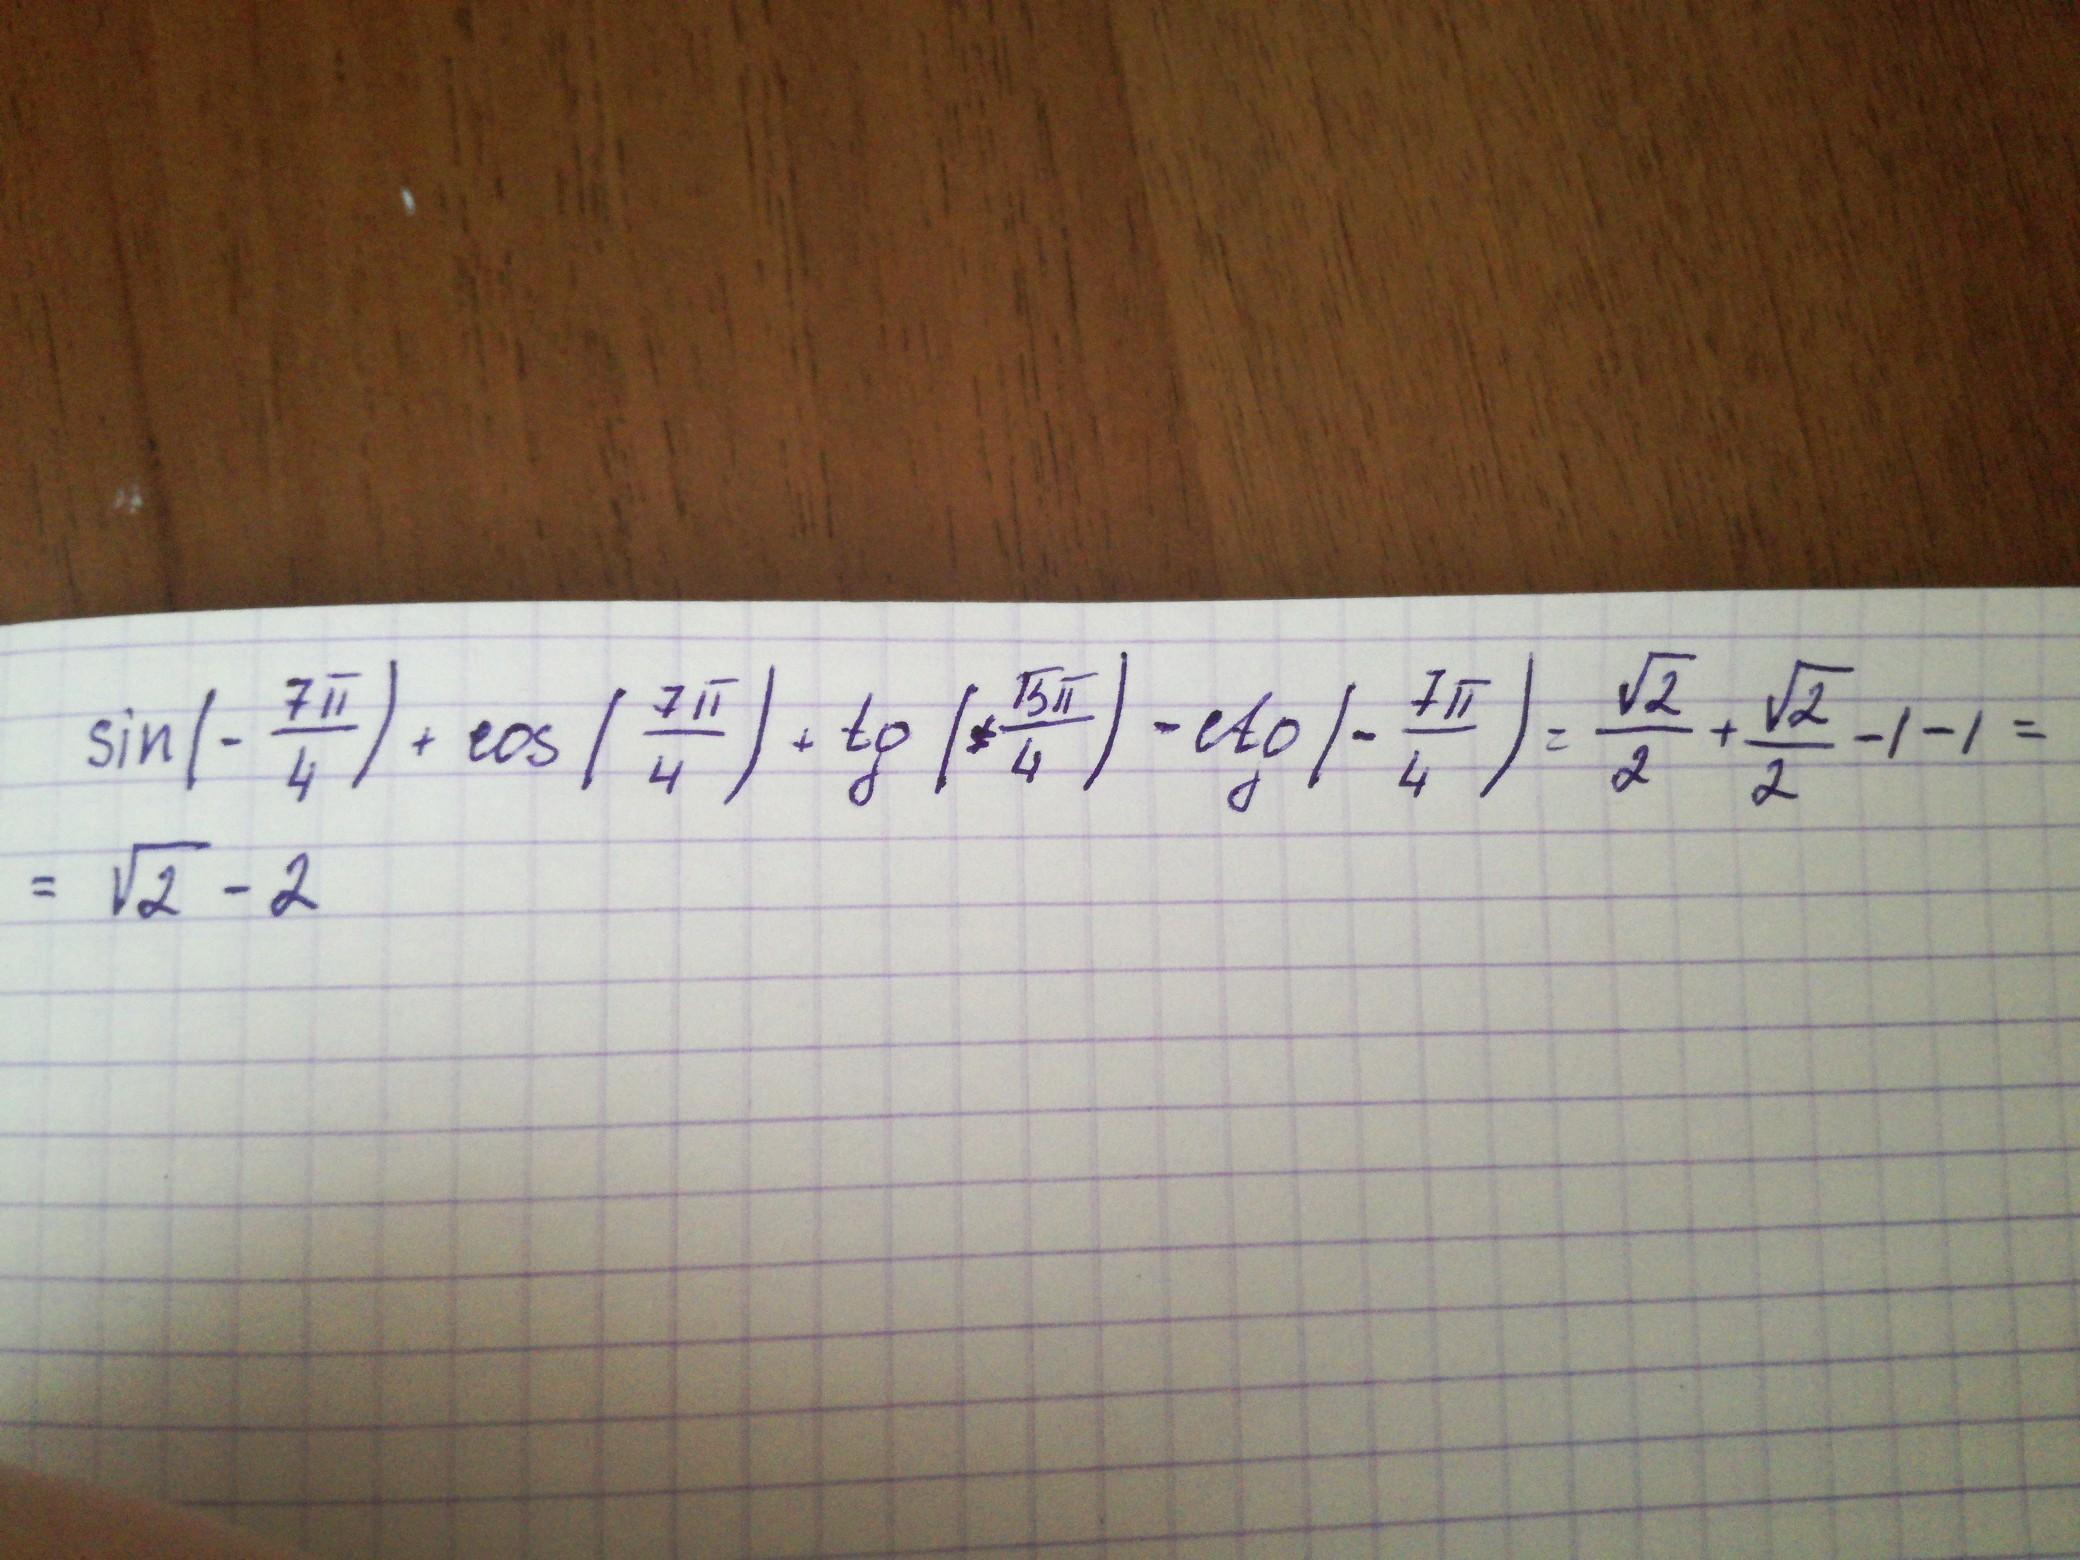 sin(-7π/4) + cos(7π/4) + tg(15π/4) - ctg(-7π/4) = √2/2 + √2/2 - 1 - 1 =
= √2 - 2